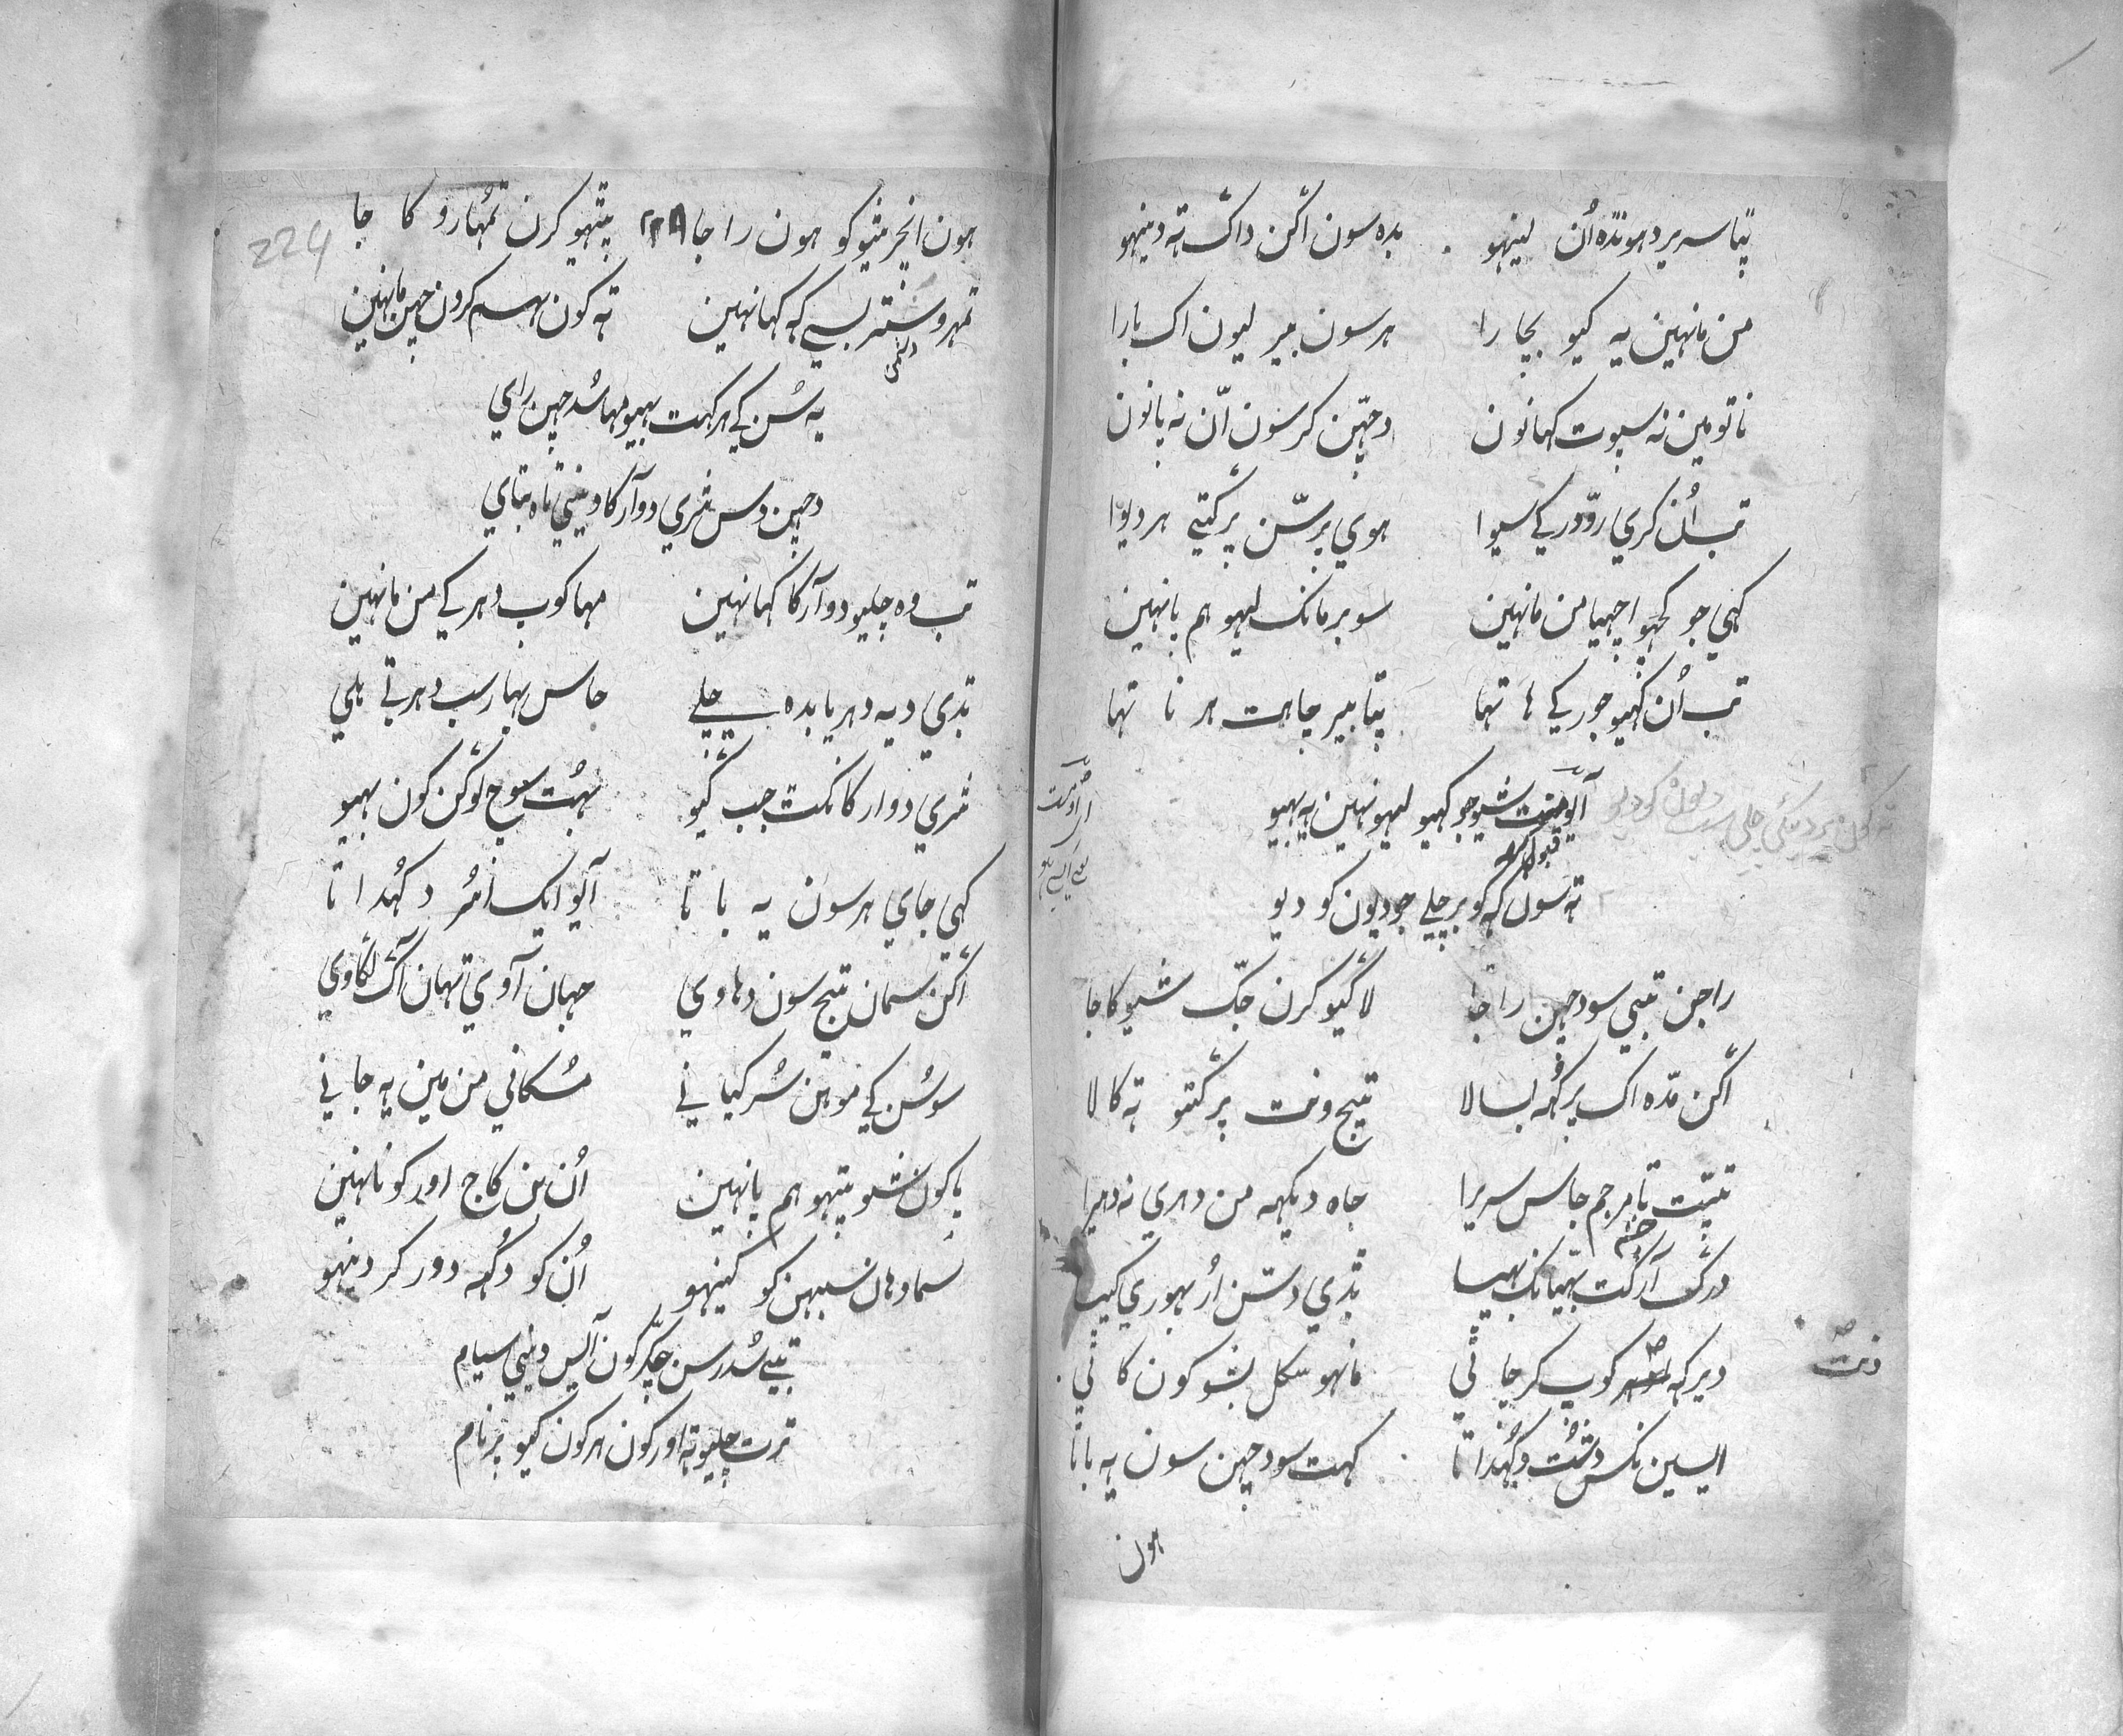 پتا سریر دهونده اُن لینہو بده سون اگن داگ ته دینہو
من مانہین یه کیو بچارا هر سون بیر لیون اک بارا
ناتو مین نه سپوت کہانون دچہن کر سون اّن نه پانون
تب اُن کري رودّر کے سیوا هوي پرسّن پرگٹے هر دیوا
کہي جو کچہو اچہیا من مانہین سو بر مانگ لیہو هم پانہین
تب اُن کہیو جور کے هاتها پتا بیر چاهت هر ناتها
شیو جو کہیو لیہو نہین یه بہیو
ته سون کہ کو بر چلے جو دیون کو دیو
راجن تبہي سودچہن راجا لاگیو کرن جگّ شیو کاجا
اگن مدّه اک پرکہه بسالا تیج ونت پرگٹو ته کالا
تپیت تامر جم جاس سریرا جاه دیکہه من دهري نه دهیرا
درگ آرکت بہیانک بہیسا بڈي دسّن اُر بہوري کیسا
دیرکه کوپ کر جاني مانہو سکل بشو کون کاني
دنت
ایسین نکس دشٹ دکہداتا کہت سودچہن سون یه باتا
هون
هون انچر شیو کو هون راجا ۲۲۸ پٹہیو کرن تمہارو کاجا
224
تمہرو ستر بسے که کہانہین ته کون بہسم کرون چہن مانہین
دشمن
یه سُن کے هرکہت بہیو مہا سُدچہن راي
دچہن دس شري دوآرکا دیني تاه بتاي
تب وه چلیو دوآرکا کہانہین مہا کوپ دهر کے من مانہین
بڈي دیه دهر یا بده چلے جاس بہار سب دهرتے هلي
شري دوارکا نکٹ جب گیو بہُت سوچ لوگن کون بہیو
کہي جاي هر سون یه باتا آیو ایک اُسُر دکہداتا
اگن سمان تیج سون دهاوي جہان آوي تہان آگ لگاوي
سو سُن کے موہن سُر گیاني مسکاني من مین یه جاني
یا کون شیو پٹہیو هم پانہین اُن بن کاج اور کو ناہین
سمادهان سبہن کو کینہو اُن کو دکہه دور کر دینہو
تبے سُدرسن چکّر کون آیس دیني سیام
ترت چلیو ته اور کون هر کون کیو پرنام